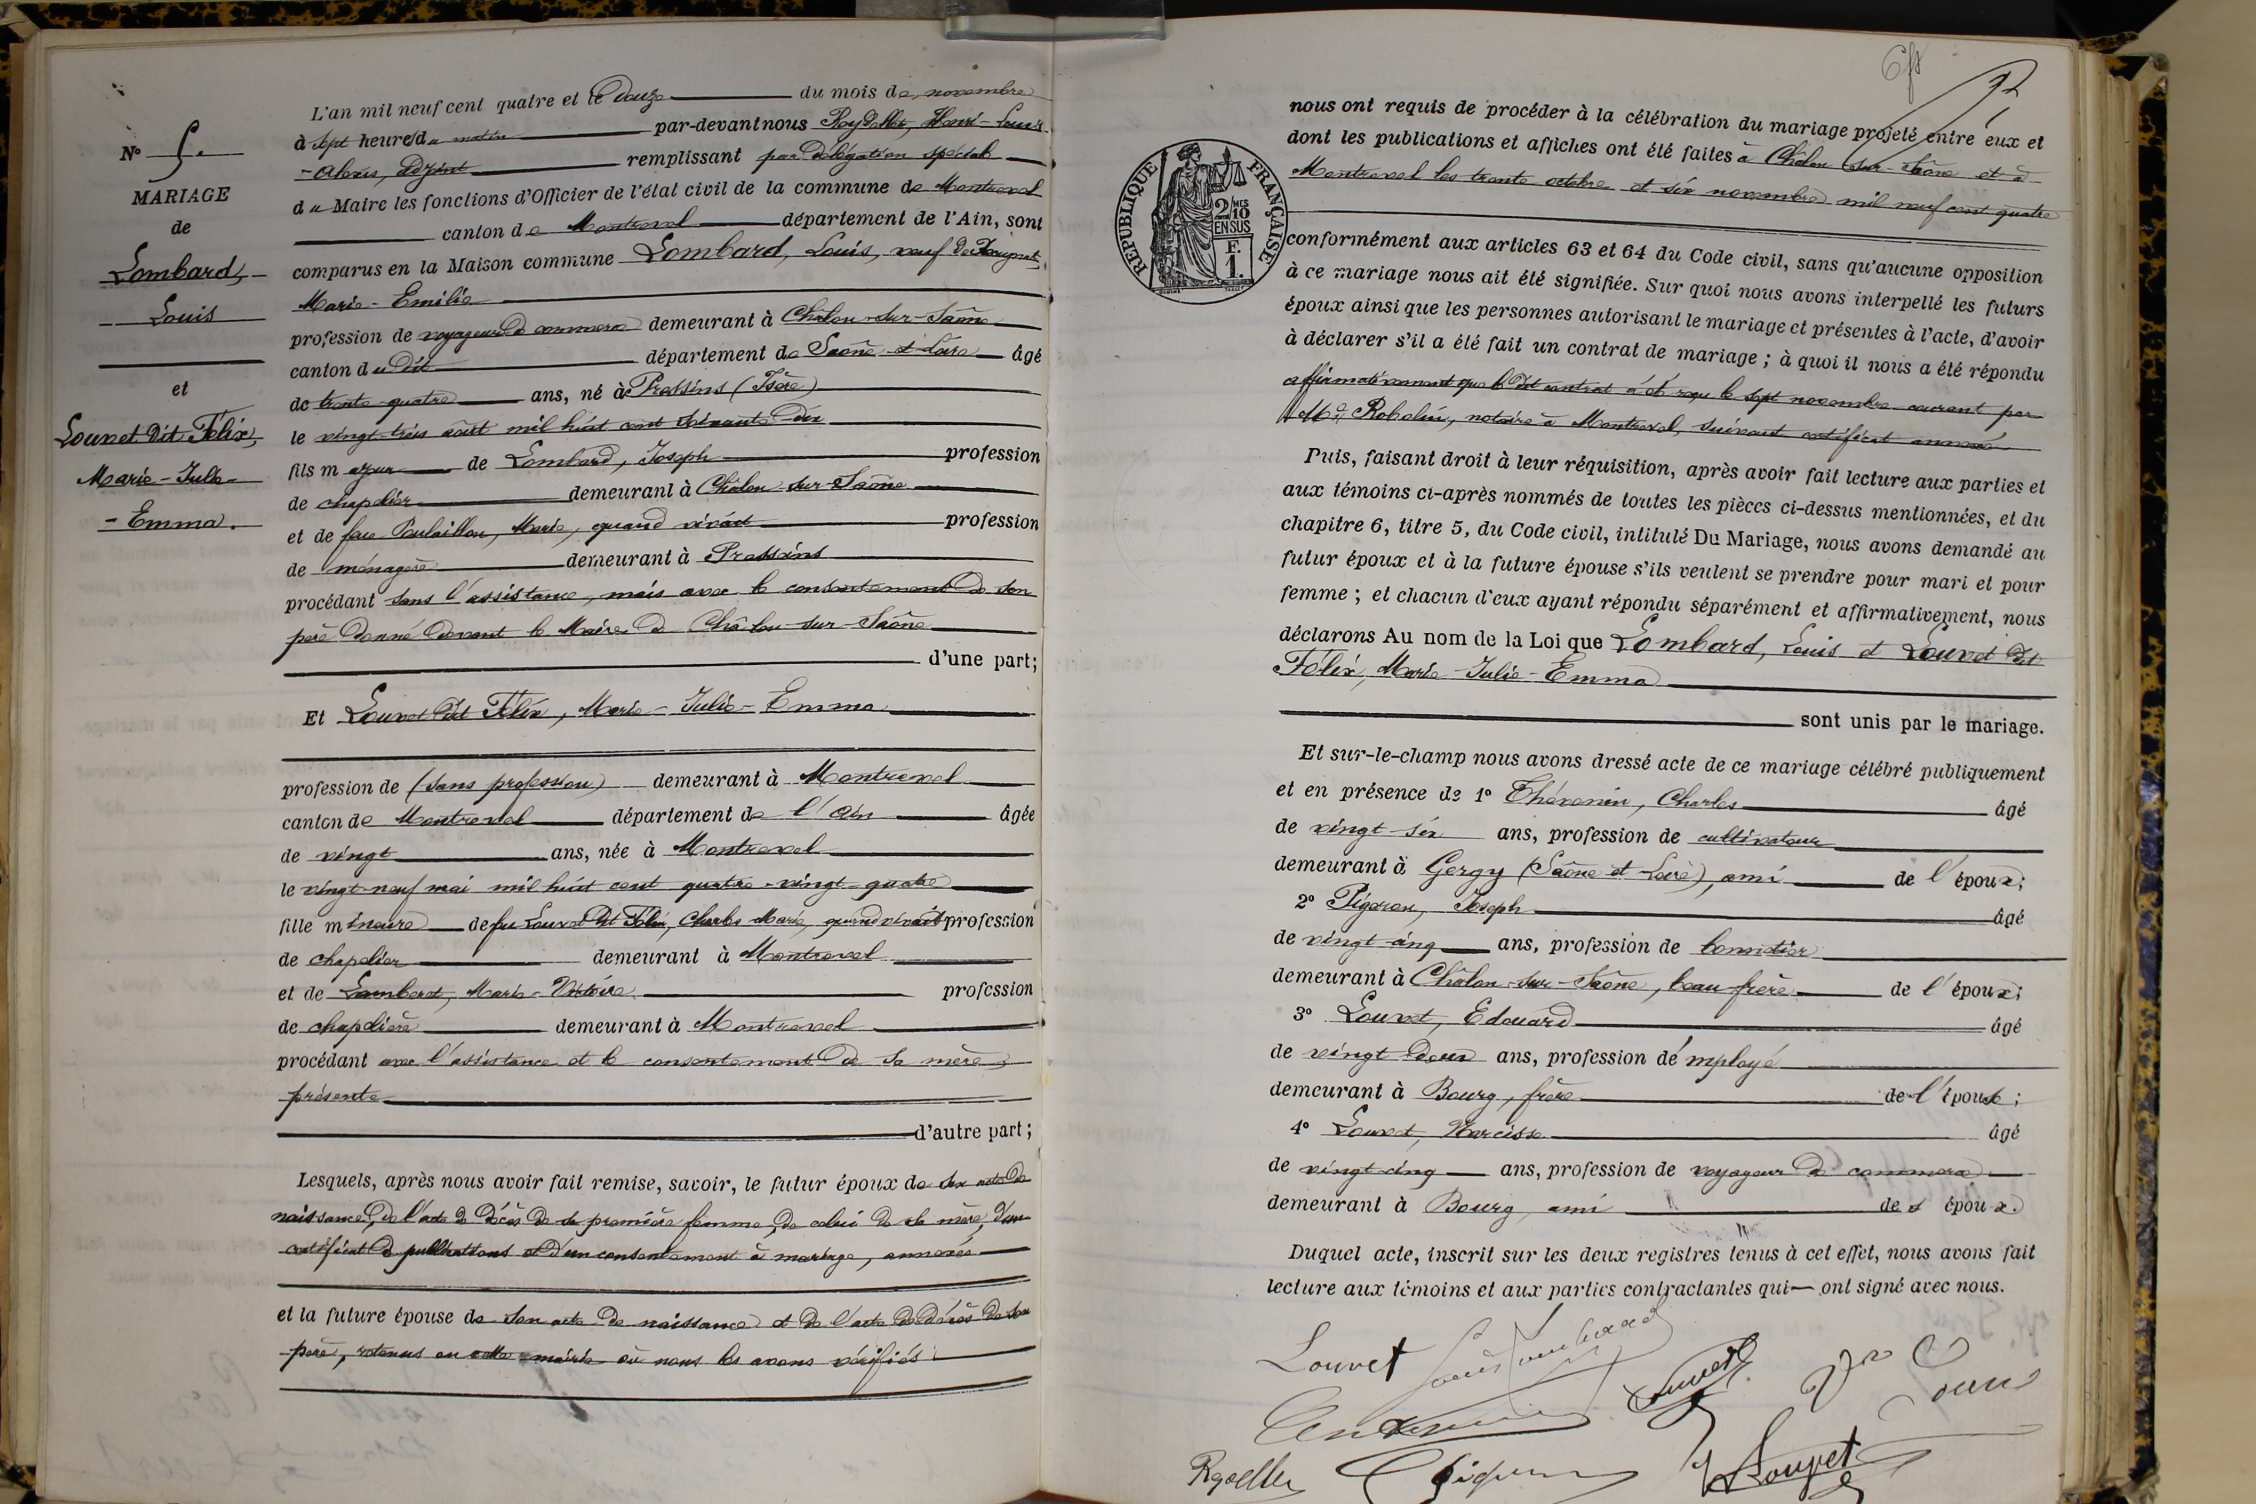 N° 5.
MARIAGE
de
Lombard,
Louis
et
Louvet dit Félix,
Marie-Julie-
-Emma.
L'an mil neuf cent quatre et le douze du mois de novembre
à sept heures du matin par-devant nous Henri-Louis-
-Alexis, Adjoint remplissant par délégation spéciale
du Maire les fonctions d'Officier de l'état civil de la commune de Montrevel
canton de Montrevel département de l'Ain, sont
comparus en la Maison commune Lombard, Louis, veuf de
Marie-Emilie
profession de voyageur de commerce demeurant à Châlon-sur-Saône
canton du dit département de Saône-et-Loire âgé
de trente-quatre ans, né à Pressins (Isère)
le vingt-trois août mil huit cent soixante-dix
fils majeur de Lombard, Joseph profession
de chapelier demeurant à Châlon-sur-Saône
et de feue Marie, quand vivait profession
de ménagère demeurant à Pressins
procédant sans l'assistance, mais avec le consentement de son
père donné devant le Maire de Châlon-sur-Saône
d'une part;
Et Louvet dit Félix, Marie-Julie-Emma
profession de (sans profession) demeurant à Montrevel
canton de Montrevel département de l'Ain âgée
de vingt ans, née à Montrevel
le vingt-neuf mai mil huit cent quatre-vingt-quatre
fille mineure de feu Louvet dit Félix, Charles-Marie, quand vivait profession
de chapelier demeurant à Montrevel
et de Lambert, Marie-Victoire profession
de chapelière demeurant à Montrevel
procédant avec l'assistance et le consentement de sa mère
présente
d'autre part;
Lesquels, après nous avoir fait remise, savoir, le futur époux de son acte de
naissance, de l'acte de décès de sa première femme, de celui de sa mère, d'un
certificat de publications et d'un consentement à mariage, annexés
et la future épouse de son acte de naissance et de l'acte de décès de son
père, retenus en cette mairie où nous les avons vérifiés
nous ont requis de procéder à la célébration du mariage projeté entre eux et
dont les publications et affiches ont été faites à Châlon-sur-Saône et à
Montrevel les trente octobre et six novembre mil neuf cent quatre
RÉPUBLIQUE FRANÇAISE
2/10 MES
EN SUS
F.
1.
conformément aux articles 63 et 64 du Code civil, sans qu'aucune opposition
à ce mariage nous ait été signifiée. Sur quoi nous avons interpellé les futurs
époux ainsi que les personnes autorisant le mariage et présentes à l'acte, d'avoir
à déclarer s'il a été fait un contrat de mariage ; à quoi il nous a été répondu
affirmativement que le dit contrat a été reçu le sept novembre courant par
Me Robelin, notaire à Montrevel, suivant certificat annexé
Puis, faisant droit à leur réquisition, après avoir fait lecture aux parties et
aux témoins ci-après nommés de toutes les pièces ci-dessus mentionnées, et du
chapitre 6, titre 5, du Code civil, intitulé Du Mariage, nous avons demandé au
futur époux et à la future épouse s'ils veulent se prendre pour mari et pour
femme ; et chacun d'eux ayant répondu séparément et affirmativement, nous
déclarons Au nom de la Loi que Lombard, Louis et Louvet dit
Félix, Marie-Julie-Emma
sont unis par le mariage.
Et sur-le-champ nous avons dressé acte de ce mariage célébré publiquement
et en présence de 1° Thévenin, Charles âgé
de vingt-six ans, profession de cultivateur
demeurant à Gergy (Saône et Loire), ami de l'époux;
2° Joseph âgé
de vingt-cinq ans, profession de
demeurant à Châlon-sur-Saône, beau-frère de l'époux;
3° Louvet, Edouard âgé
de vingt-deux ans, profession d'employé
demeurant à Bourg, frère de l'épouse;
4° Louvet, Narcisse âgé
de vingt-cinq ans, profession de voyageur de commerce
demeurant à Bourg, ami des époux.
Duquel acte, inscrit sur les deux registres tenus à cet effet, nous avons fait
lecture aux témoins et aux parties contractantes qui ont signé avec nous.
Louvet Louis Lombard Louvet
Louvet